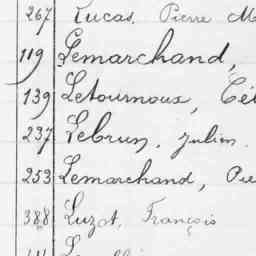 267 Lucas, Pierre M
119 Lemarchand,
139 Letournoux, Cél
237 Lebrun, Julien
253 Lemarchand, Pie
388 Luzot, François